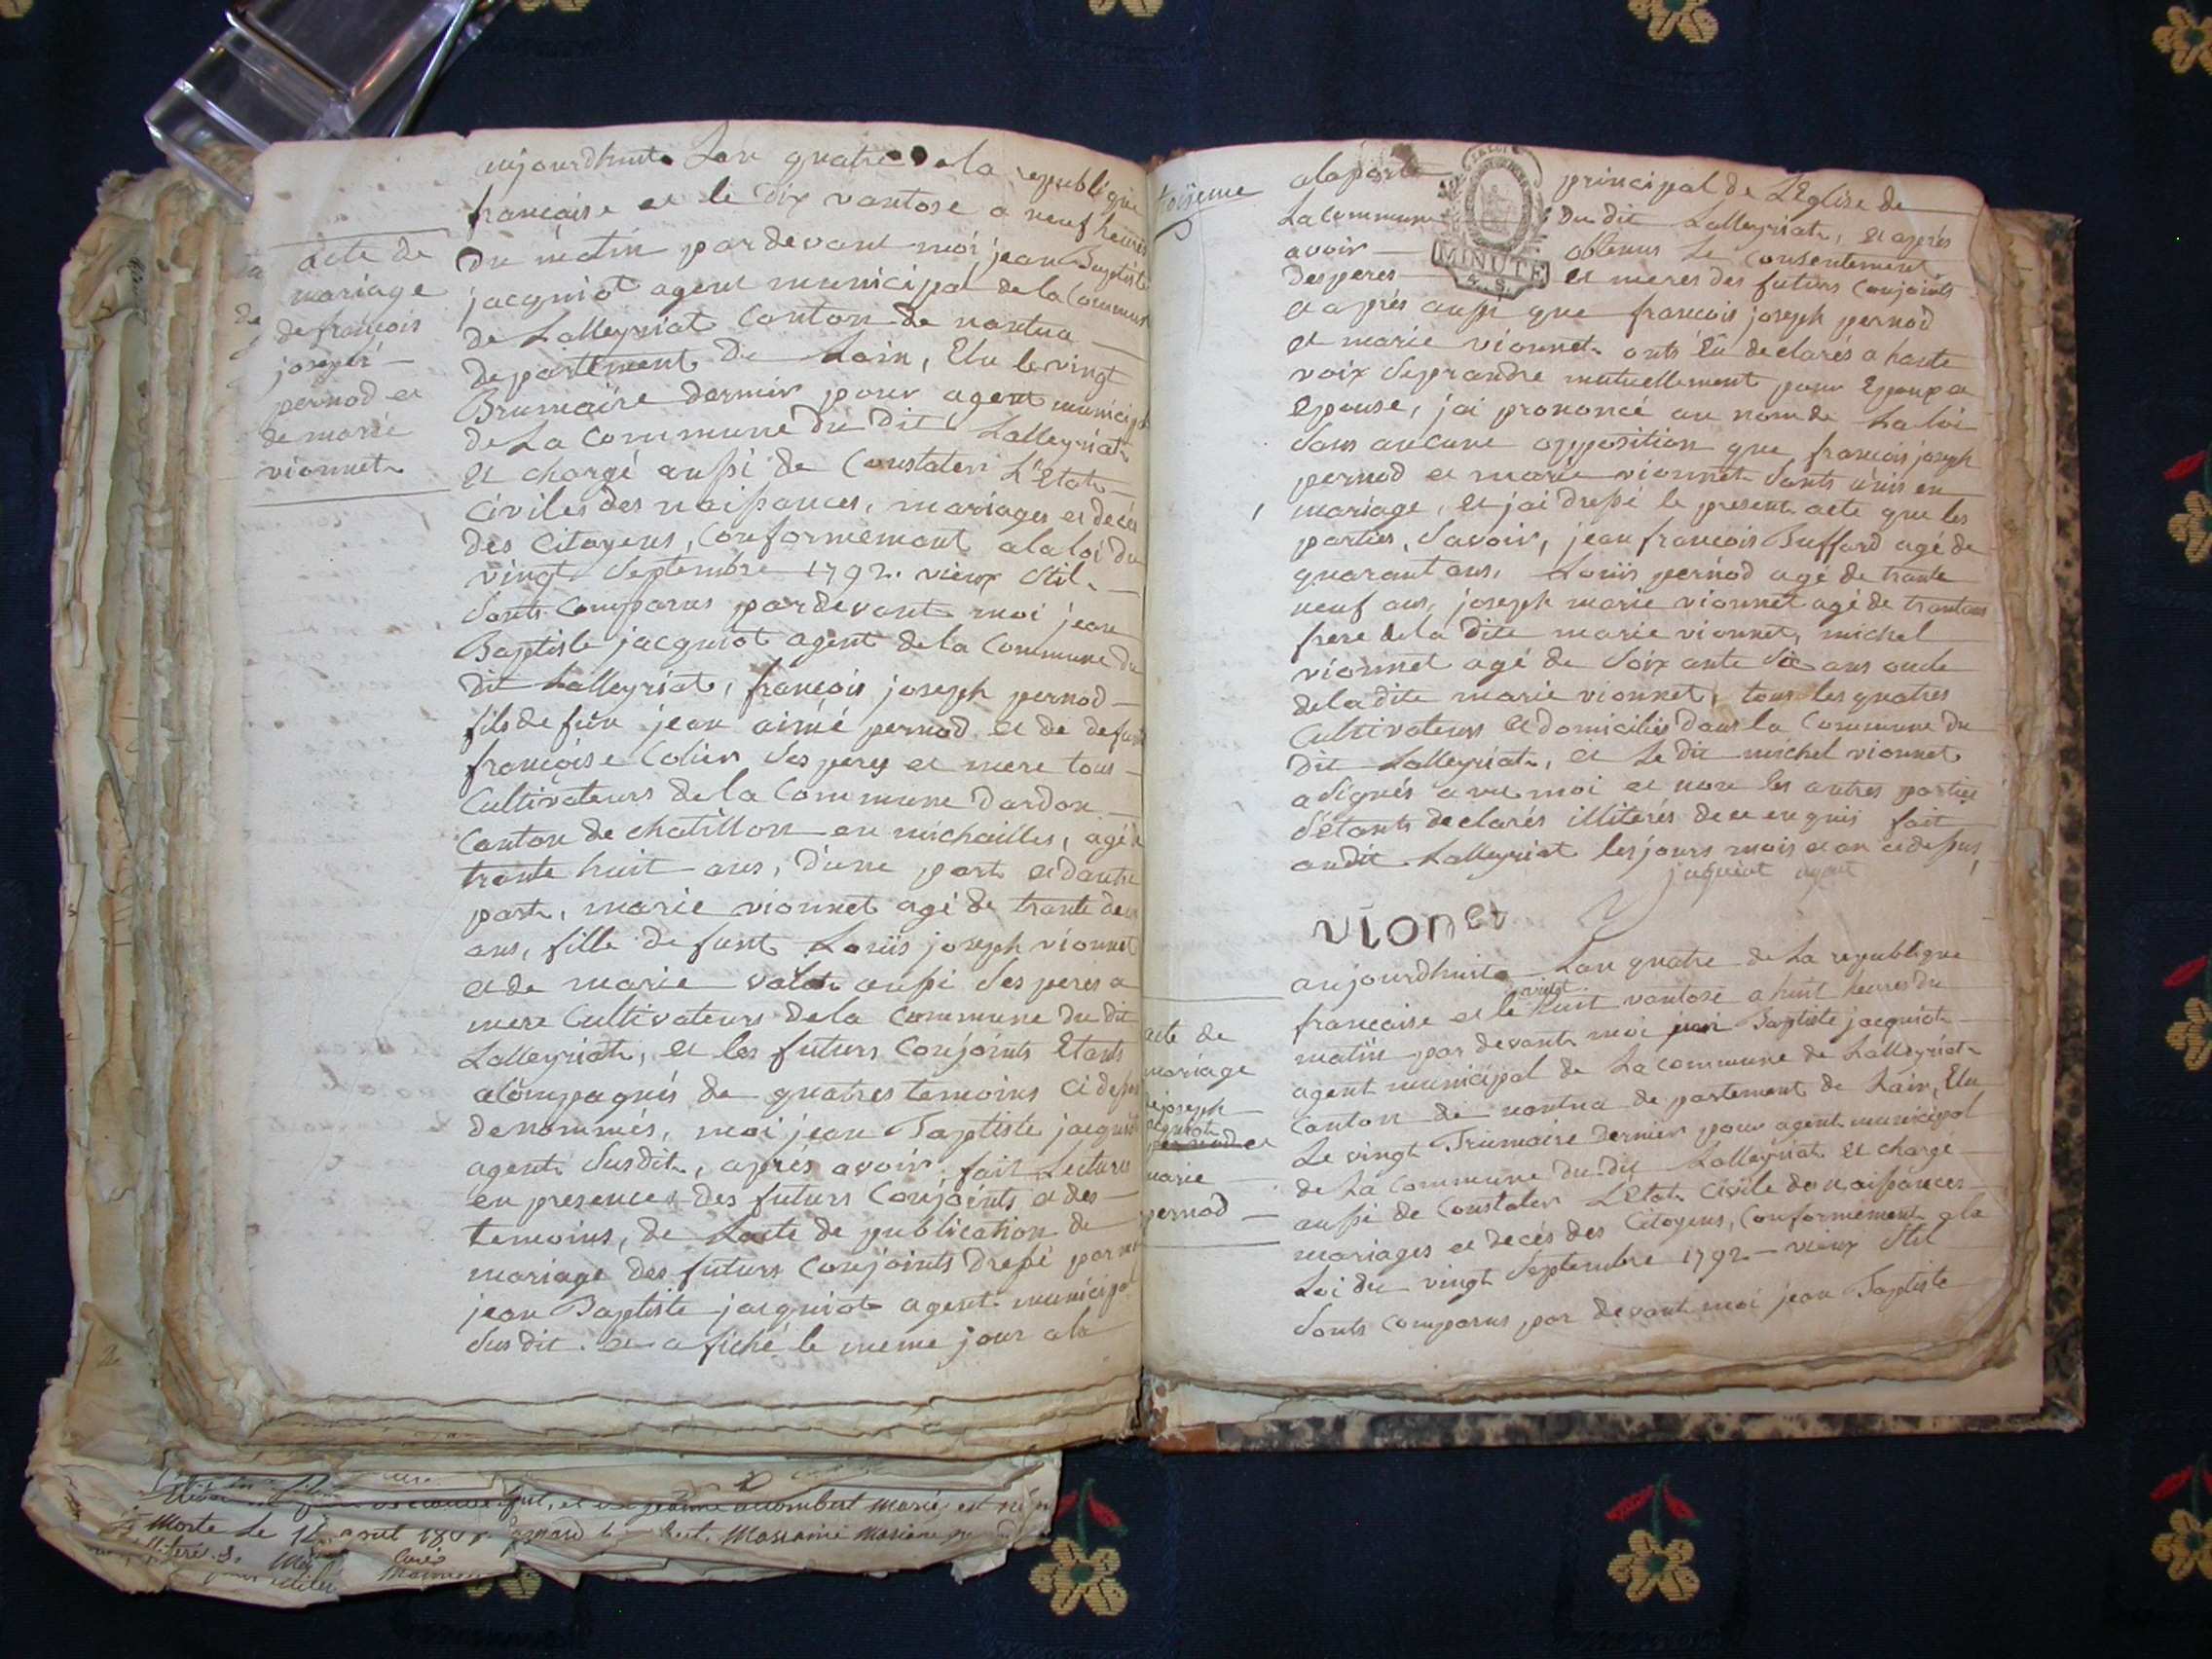 acte de
mariage
de francois
joseph
pernod et
de marie
vionnet
aujourdhuit Lan quatre de la republique
francaise et le dix vantose a neuf heures
du matin par devant moi jean Baptiste
jacquiot agent municipal de la Commune
de Lalleyriat Canton de nantua
departement de Lain, Elu le vingt
Brumaire dernier pour agent municipal
de La Commune du dit Lalleyriat
et chargé aussi de Constater L'Etat
Civiles des naissances, mariages et decés
des Citoyens, Conformement a la loi du
vingt Septembre 1792. vieux Stil
Sonts Comparus pardevant moi jean
Baptiste jacquiot agent de la Commune du
dit Lalleyriat, francois joseph pernod
fils de feu jean aimé pernod et de defunt
françoise Ses peres et mere tous
Cultivateurs de la Commune dardon
Canton de chatillon en michailles, agé de
trante huit ans, d'une part et dautre
part, marie vionnet agé de trante deux
ans, fille de funt Louis joseph vionnet
et de marie aussi Ses peres et
mere Cultivateurs de la Commune du dit
Lalleyriat, et les futurs Conjoints Etants
acompagnés de quatres temoins Ci dessus
denommés, moi jean Baptiste jacquiot
agent Susdit, aprés avoir fait Lecture
en presence des futurs Conjoints et des
temoins, de Lacte de publication de
mariage des futurs Conjoints dressé par moi
jean Baptiste jacquiot agent municipal
Susdit et afiché le meme jour a la
toisieme
MINUTE
a la porte principal de L'Eglise de
La Commune du dit Lalleyriat, et aprés
avoir obtenus Le Consentement
des peres et meres des futurs Conjoints
et aprés aussi que francois joseph pernod
et marie vionnet onts Eu declarés a haute
voix Se prandre mutuellement pour Epoux et
Epouse, jai prononcé au nom de La loi
Sans aucune opposition que francois joseph
pernod et marie vionnet Sonts unis en
mariage, et jai dressé le present acte que les
parties, Savoir, jean francois Buffard agé de
quarant ans, Louis pernod agé de trante
neuf ans, joseph marie vionnet agé de trantans
frere de la dite marie vionnet, michel
vionnet agé de Soixante Sic ans oncle
de la dite marie vionnet, tous les quatres
Cultivateurs et domiciliés dans la Commune du
dit Lalleyriat, et Le dit michel vionnet
a Signés avec moi et non les autres parties
S'étants declarés illiterés de ce enquis fait
audit Lalleyriat les jours mois et an cidessus,
jaquiot agent
vionet
acte de
mariage
de joseph
jaquiot
pernod et
marie
pernod
aujourdhuit Lan quatre de La republique
francaise et le vingt huit vantose a huit heures du
matin par devant moi jean Baptiste jacquiot
agent municipal de La Commune de Lalleyriat
Canton de nantua departement de Lain, Elu
Le vingt Brumaire dernier pour agent municipal
de La Commune du dit Lalleyriat et chargé
aussi de Constater L'Etat Civile de naissances
mariages et decés des Citoyens, Conformement a la
Loi du vingt Septembre 1792 vieux Stil
Sonts Comparus par devant moi jean Baptiste
Morte Le août